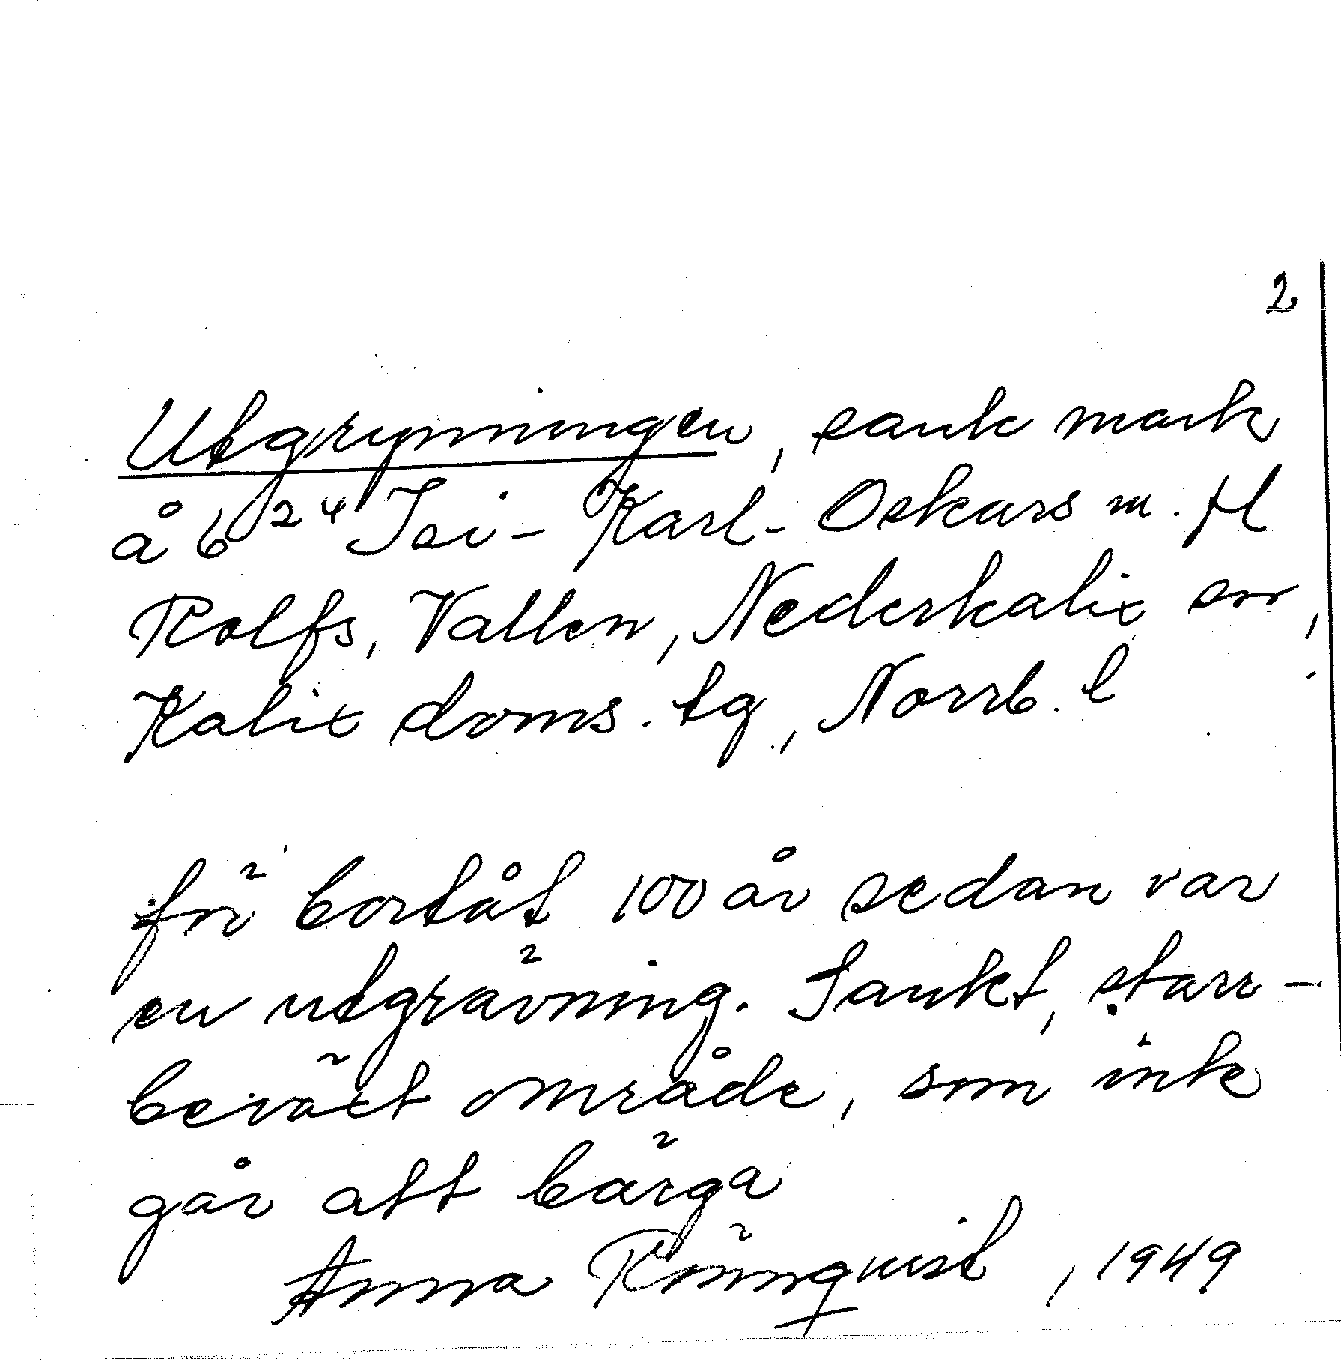 2
Utgrynningen, sank mark
å 6²⁴ Isi-Karl-Oskars m. fl
Rolfs, Vallen, Nederkalix sn,
Kalix doms. tg, Norrb. l
för bortåt 100 år sedan var
en utgrävning. Sankt, starr-
beväxt område, som inte
går att bärga
Anna Rönnquist, 1949